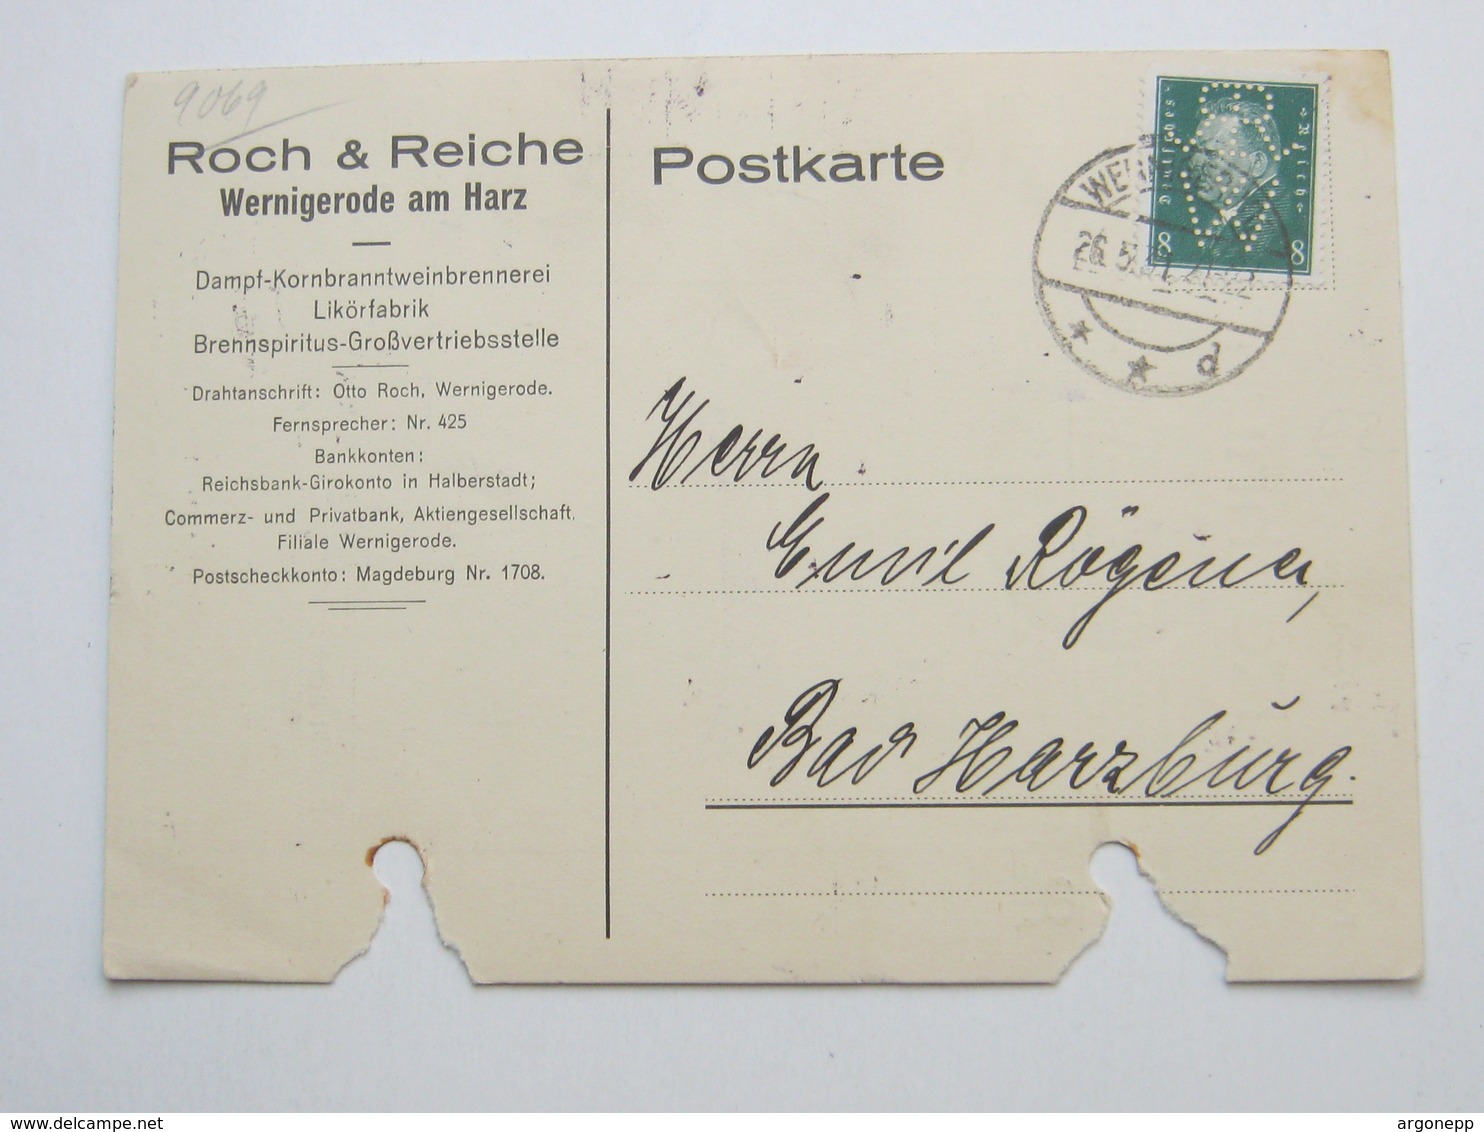 9069
Roch & Reiche
Wernigerode am Harz
Dampf-Kornbranntweinbrennerei
Likörfabrik
Brennspiritus-Großvertriebsstelle
Drahtanschrift: Otto Roch, Wernigerode.
Fernsprecher: Nr. 425
Bankkonten:
Reichsbank-Girokonto in Halberstadt;
Commerz- und Privatbank, Aktiengesellschaft,
Filiale Wernigerode.
Postscheckkonto: Magdeburg Nr. 1708.
Postkarte
Deutsches Reich
8 8
26.5.31.
* * d
Herrn
Emil Rögener,
Bad Harzburg.
www.delcampe.net
argonepp